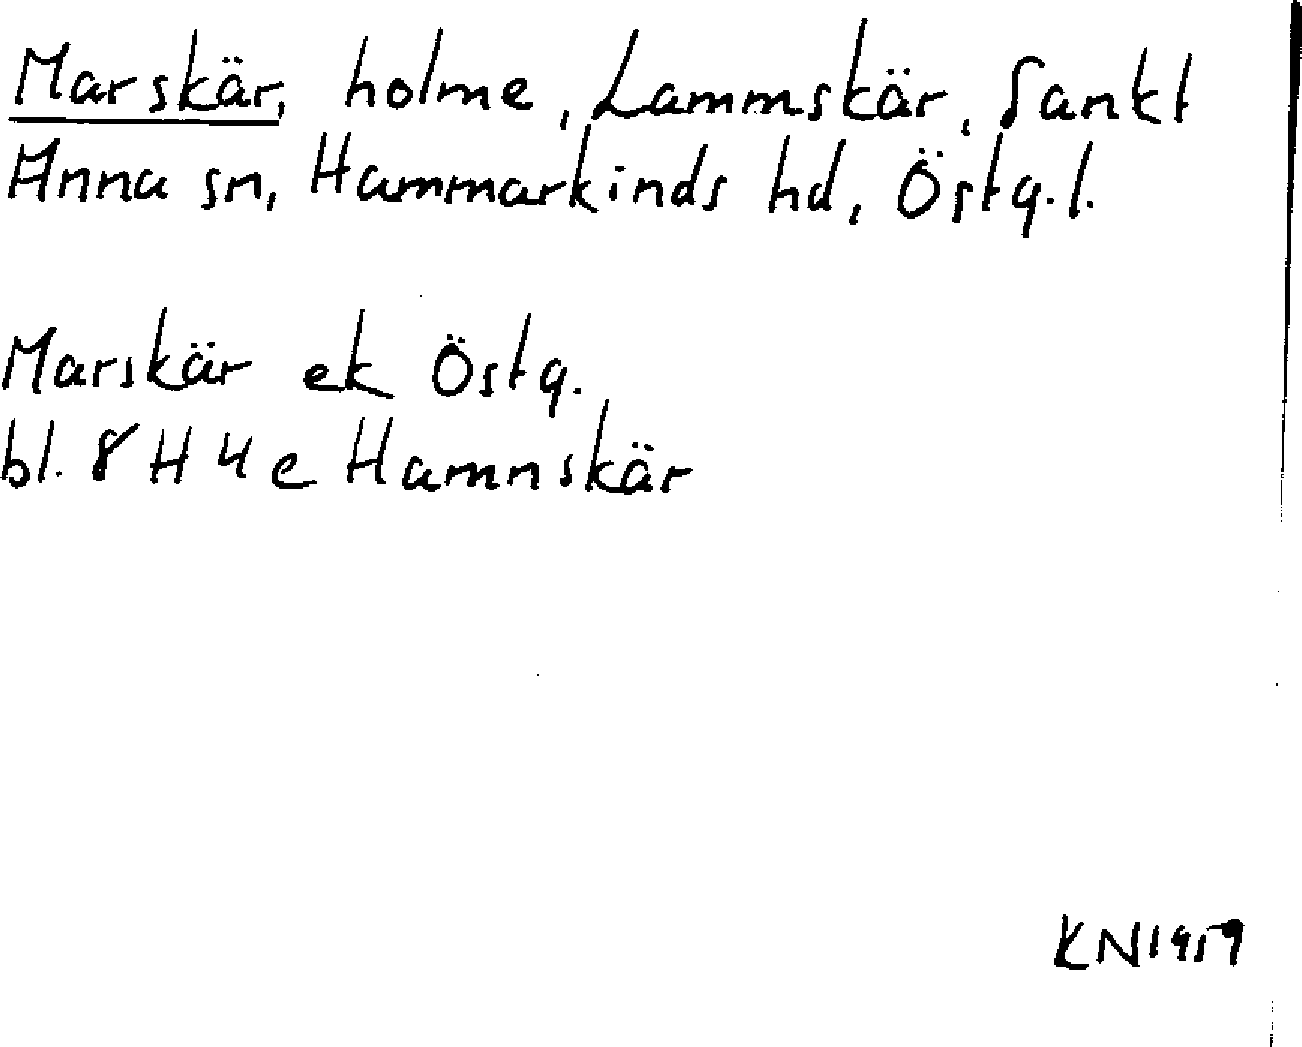 Marskär, holme, Lammskär, Sankt
Anna sn, Hammarkinds hd, Östg.l.
Marskär ek Östg.
bl. 8 H 4 e Hamnskär
KN 1959